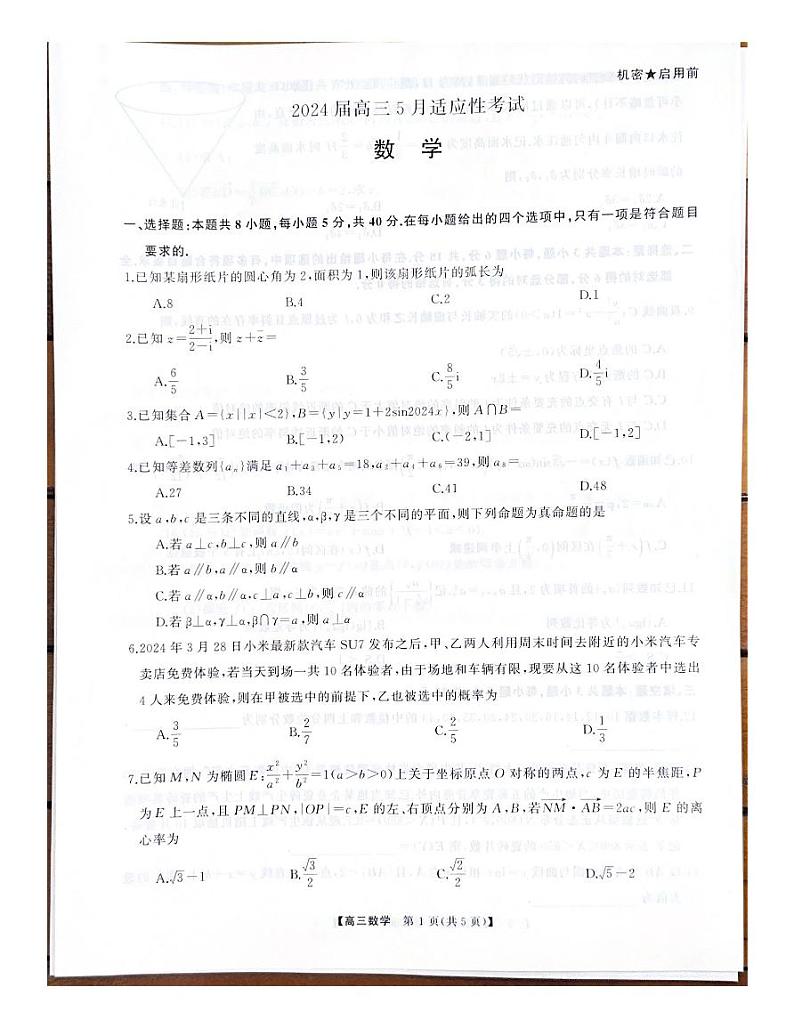 机密★启用前
2024届高三5月适应性考试
数 学
一、选择题:本题共8小题,每小题5分,共40分.在每小题给出的四个选项中,只有一项是符合题目
要求的.
1.已知某扇形纸片的圆心角为2,面积为1,则该扇形纸片的弧长为
A.8 B.4 C.2 D.1
2.已知 z=\frac{2+i}{2-i},则 z+\bar{z}=
A.\frac{6}{5} B.\frac{3}{5} C.\frac{8}{5}i D.\frac{4}{5}i
3.已知集合 A={x||x|<2},B={y|y=1+2sin2024x},则 A∩B=
A.[-1,3] B.[-1,2) C.(-2,1] D.[-1,2]
4.已知等差数列{aₙ}满足 a₁+a₃+a₅=18,a₂+a₄+a₆=39,则 a₈=
A.27 B.34 C.41 D.48
5.设 a,b,c 是三条不同的直线,α,β,γ 是三个不同的平面,则下列命题为真命题的是
A.若 a⊥c,b⊥c,则 a∥b
B.若 a∥b,a∥α,则 b∥α
C.若 a∥α,b∥α,c⊥a,c⊥b,则 c∥α
D.若 β⊥α,γ⊥α,β∩γ=a,则 a⊥α
6.2024年3月28日小米最新款汽车 SU7 发布之后,甲、乙两人利用周末时间去附近的小米汽车专
卖店免费体验,若当天到场一共10名体验者,由于场地和车辆有限,现要从这10名体验者中选出
4人来免费体验,则在甲被选中的前提下,乙也被选中的概率为
A.\frac{3}{5} B.\frac{2}{7} C.\frac{2}{5} D.\frac{1}{3}
7.已知 M,N 为椭圆 E:\frac{x²}{a²}+\frac{y²}{b²}=1(a>b>0)上关于坐标原点 O 对称的两点,c 为 E 的半焦距,P
为 E 上一点,且 PM⊥PN,|OP|=c,E 的左、右顶点分别为 A,B,若\overrightarrow{NM}·\overrightarrow{AB}=2ac,则 E 的离
心率为
A.√3-1 B.\frac{√3}{2} C.\frac{√2}{2} D.√5-2
【高三数学 第1页(共5页)】